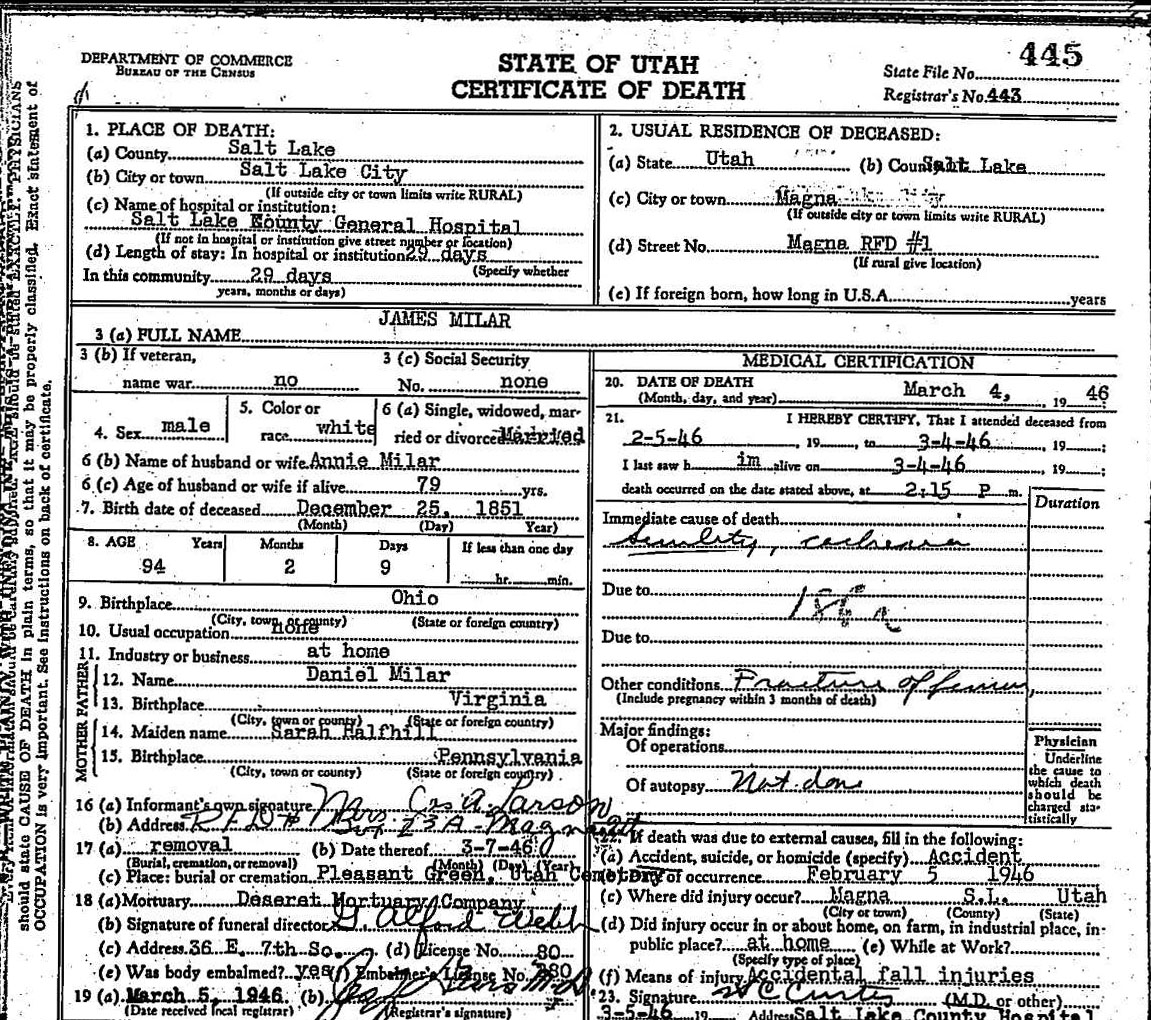 DEPARTMENT OF COMMERCE
BUREAU OF THE CENSUS
STATE OF UTAH
CERTIFICATE OF DEATH
State File No. 445
Registrar's No. 443
should state CAUSE OF DEATH in plain terms, so that it may be properly classified. Exact statement of
OCCUPATION is very important. See instructions on back of certificate.
1. PLACE OF DEATH:
(a) County Salt Lake
(b) City or town Salt Lake City
(If outside city or town limits write RURAL)
(c) Name of hospital or institution:
Salt Lake County General Hospital
(If not in hospital or institution give street number or location)
(d) Length of stay: In hospital or institution 29 days
(Specify whether
In this community 29 days
years, months or days)
2. USUAL RESIDENCE OF DECEASED:
(a) State Utah (b) County Salt Lake
(c) City or town Magna
(If outside city or town limits write RURAL)
(d) Street No. Magna RFD #1
(If rural give location)
(e) If foreign born, how long in U.S.A. years
3 (a) FULL NAME JAMES MILAR
3 (b) If veteran,
name war no
3 (c) Social Security
No. none
4. Sex male
5. Color or
race white
6 (a) Single, widowed, mar-
ried or divorced Married
6 (b) Name of husband or wife Annie Milar
6 (c) Age of husband or wife if alive 79 yrs.
7. Birth date of deceased December 25, 1851
(Month) (Day) Year)
8. AGE Years Months Days If less than one day
94 2 9 hr. min.
9. Birthplace Ohio
(City, town, or county) (State or foreign country)
10. Usual occupation none
11. Industry or business at home
FATHER
12. Name Daniel Milar
13. Birthplace Virginia
(City, town or county) (State or foreign country)
MOTHER
14. Maiden name Sarah Halfhill
15. Birthplace Pennsylvania
(City, town or county) (State or foreign country)
16 (a) Informant's own signature Mrs A. Larson
(b) Address RFD # Magna
17 (a) removal (b) Date thereof 3-7-46
(Burial, cremation, or removal) (Month) (Day) (Year)
(c) Place: burial or cremation Pleasant Green, Utah Cemetery
18 (a) Mortuary Deseret Mortuary Company
(b) Signature of funeral director G. Alford Webb
(c) Address 36 E. 7th So. (d) License No. 80
(e) Was body embalmed? yes (f) Embalmer's License No. 280
19 (a) March 5, 1946 (b)
(Date received local registrar) (Registrar's signature)
MEDICAL CERTIFICATION
20. DATE OF DEATH
(Month, day, and year) March 4, 19 46
21. I HEREBY CERTIFY, That I attended deceased from
2-5-46, 19, to 3-4-46, 19;
I last saw h im alive on 3-4-46, 19;
death occurred on the date stated above, at 2:15 P m.
Duration
Immediate cause of death
Senility,
Due to
Due to
Other conditions Fracture of femur,
(Include pregnancy within 3 months of death)
Major findings:
Of operations
Of autopsy Not done
Physician
Underline
the cause to
which death
should be
charged sta-
tistically
22. If death was due to external causes, fill in the following:
(a) Accident, suicide, or homicide (specify) Accident
(b) Date of occurrence February 5 1946
(c) Where did injury occur? Magna S.L. Utah
(City or town) (County) (State)
(d) Did injury occur in or about home, on farm, in industrial place, in-
public place? at home (e) While at Work?
(Specify type of place)
(f) Means of injury Accidental fall injuries
23. Signature H C Curtis (M.D. or other)
3-5-46 19 Address Salt Lake County Hospital